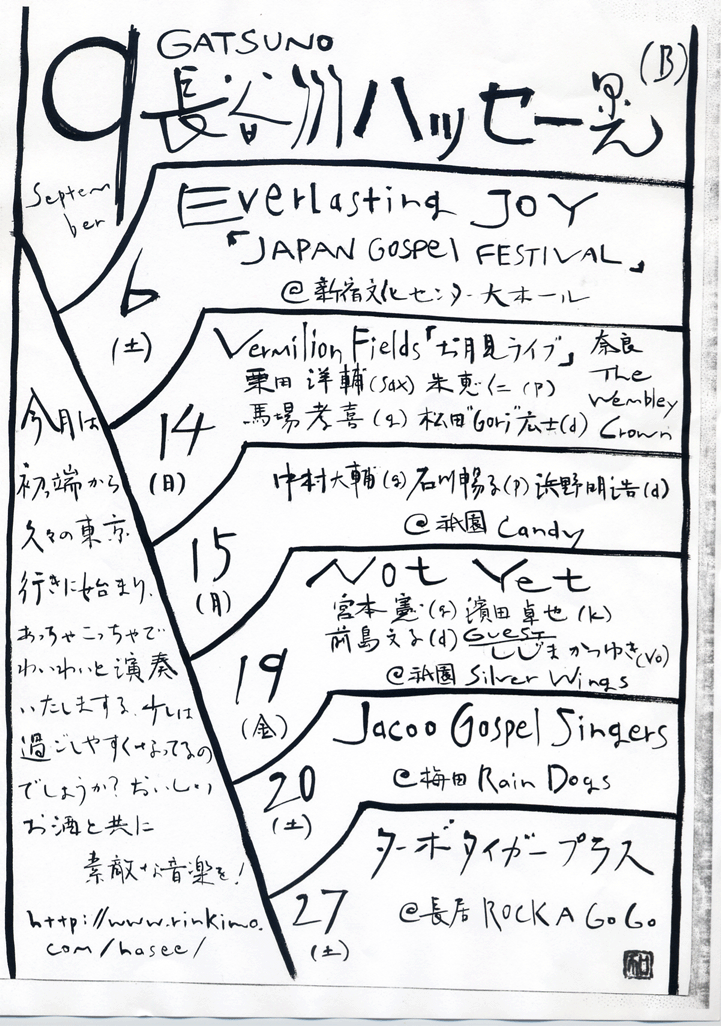 9
GATSUNO
長谷川ハッセー晃
(B)
Septem
ber
6
(土)
Everlasting JOY
「JAPAN GOSPEL FESTIVAL」
@新宿文化センター大ホール
14
(日)
Vermilion Fields「お月見ライブ」
栗田洋輔(sax) 朱恵仁(p)
馬場孝喜(g) 松田"Gori"広士(d)
奈良
The
Wembley
Crown
15
(月)
中村大輔(g) 石川暢子(p) 浜野明浩(d)
@祇園 Candy
19
(金)
Not Yet
宮本憲(g) 濱田卓也(k)
前島文子(d) GUEST
しじまかつゆき(vo)
@祇園 Silver Wings
20
(土)
Jacoo Gospel Singers
@梅田 Rain Dogs
27
(土)
ターボタイガープラス
@長居 ROCK A GoGo
今月は
初っ端から
久々の東京
行きに始まり、
あっちゃこっちゃで
わいわいと演奏
いたしまする。少しは
過ごしやすくなってるの
でしょうか?おいしい
お酒と共に
素敵な音楽を!
http://www.rinkimo.
com/hasee/